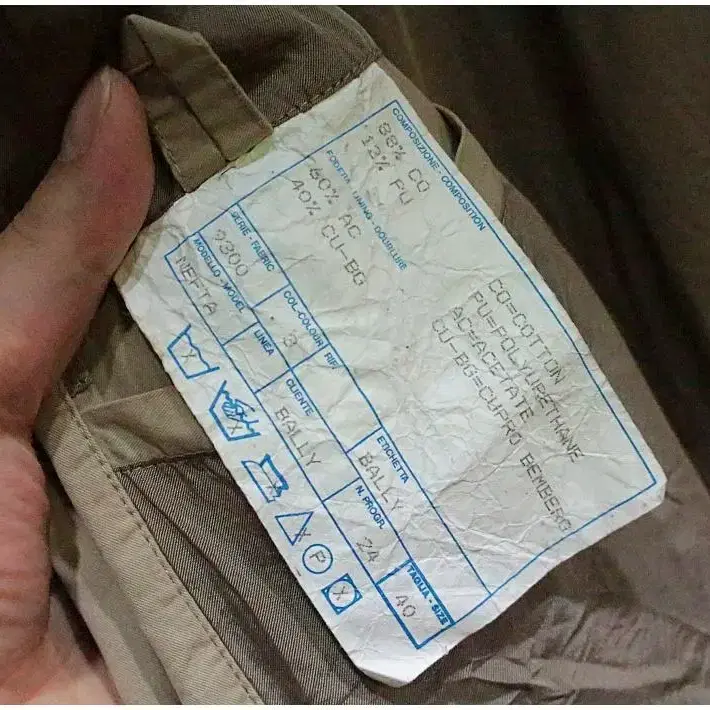 COMPOSIZIONE - COMPOSITION
88% CO
12% PU
FODERA - LINING - DOUBLURE
60% AC
40% CU-BG
CO=COTTON
PU=POLYURETHANE
AC=ACETATE
CU-BG=CUPRO BEMBERG
SERIE - FABRIC
9300
COL-COLOUR
3
RIF.
ETICHETTA
BALLY
MODELLO - MODEL
NEFTA
LINEA
CLIENTE
BALLY
N. PROGR.
24
TAGLIA - SIZE
40
P